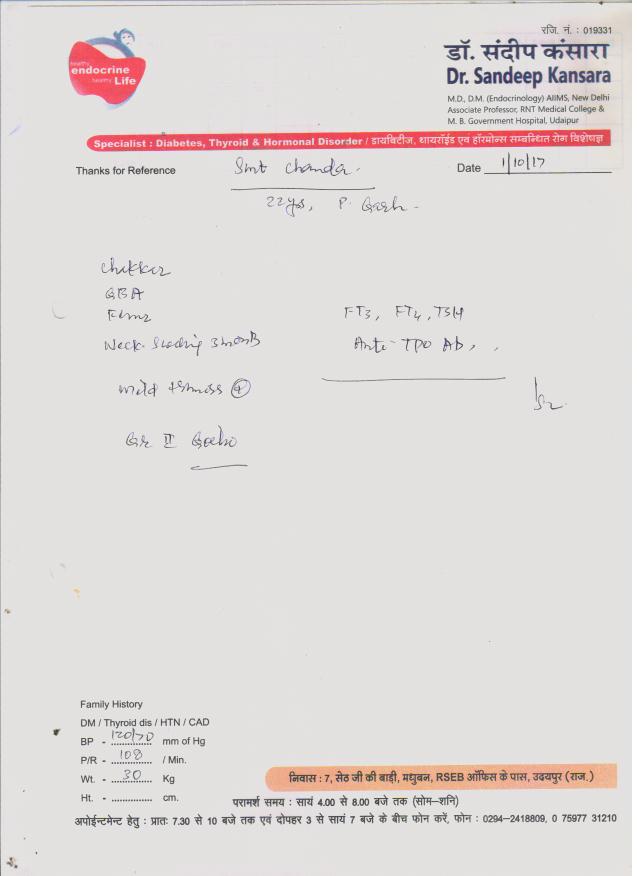 रजि. नं. : 019331
healthy
endocrine
healthy Life
डॉ. संदीप कंसारा
Dr. Sandeep Kansara
M.D., D.M. (Endocrinology) AIIMS, New Delhi
Associate Professor, RNT Medical College &
M. B. Government Hospital, Udaipur
Specialist : Diabetes, Thyroid & Hormonal Disorder / डायबिटीज, थायरॉईड एवं हॉरमोन्स सम्बन्धित रोग विशेषज्ञ
Thanks for Reference Smt Chanda Date 1/10/17
22 yrs, P. Garh
Chakkar
GBA
FT3, FT4, TSH
Neck Anti-TPO Ab,
mild
Gr II
Family History
DM / Thyroid dis / HTN / CAD
BP - 120/70 mm of Hg
P/R - 108 / Min.
Wt. - 30 Kg
Ht. - .............. cm.
निवास : 7, सेठ जी की बाड़ी, मधुबन, RSEB ऑफिस के पास, उदयपुर (राज.)
परामर्श समय : सायं 4.00 से 8.00 बजे तक (सोम-शनि)
अपोईन्टमेन्ट हेतु : प्रातः 7.30 से 10 बजे तक एवं दोपहर 3 से सायं 7 बजे के बीच फोन करें, फोन : 0294-2418809, 0 75977 31210